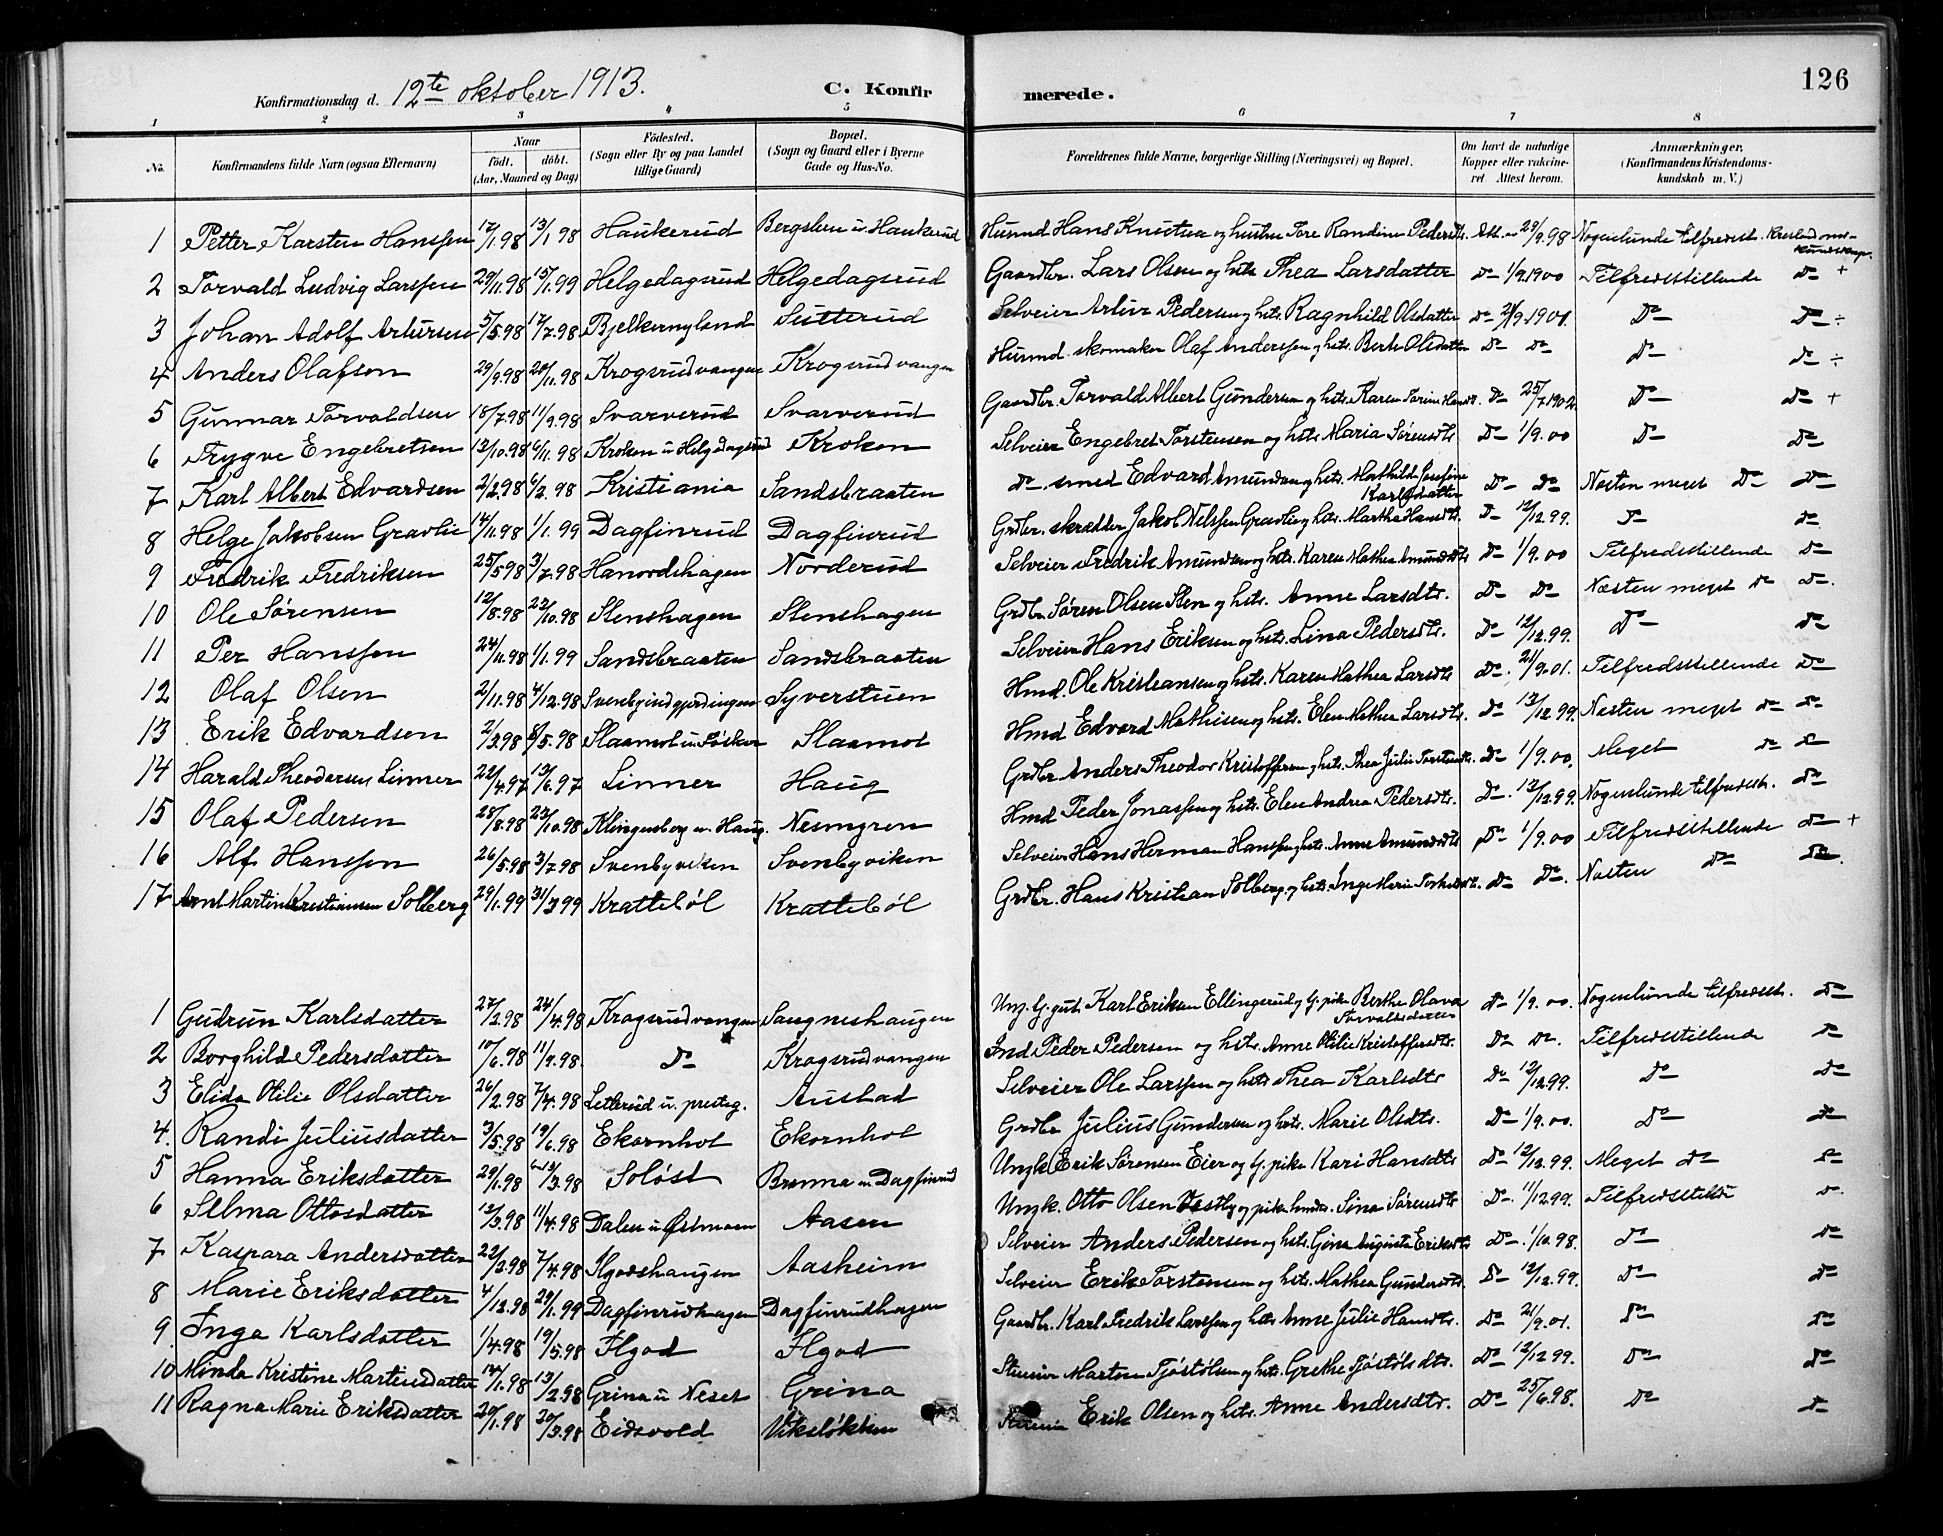 126
Konfirmationsdag d. 12te oktober 1913. C. Konfirmerede.
1 2 3 4 5 6 7 8
No. Konfirmandens fulde Navn (ogsaa Efternavn) Naar födt. döbt. (Aar, Maaned og Dag) Födested. (Sogn eller By og paa Landet tillige Gaard) Bopæl. (Sogn og Gaard eller i Byerne Gade og Hus-No. Forældrenes fulde Navne, borgerlige Stilling (Næringsvei) og Bopæl. Om havt de naturlige Kopper eller vaccineret Attest herom. Anmærkninger. (Konfirmandens Kristendomskundskab m. V.)
1 Petter Karsten Hanssen 17/1.98 13/1 98 Haukerud Bergslien u. Haukerud Husmd Hans Knutsen og hustru Tore Randine Pedersdt. Att. 29/9.98 Nogenlunde tilfredsst. Kristendomskundskap.
2 Torvald Ludvig Larssen 29/11.98 15/1.99 Helgedagsrud Helgedagsrud Gaardbr. Lars Olsen og hstr Thea Larsdatter Do 1/9.1900 Tilfredsstillende Do +
3 Johan Adolf Artursen 5/5.98 17/7.98 Bjelkernyland Sutterud Selveier Artur Pedersen og hstr. Ragnhild Olsdatter Do 21/9.1901. Do Do ÷
4 Anders Olafsen 29/9.98 20/11.98 Krogsrudvangen Krogsrudvangen Husmd. skomaker Olaf Anderssen og hstr. Berte Olsdatter Do Do Do Do ÷
5 Gunnar Torvaldsen 18/7.98 11/9.98 Svarverud Svarverud Gaardbr. Torvald Albert Gundersen og hstr. Karen Do 25/7.1902. Do Do +
6 Trygve Engebretsen 13/10.98 6/11.98 Kroken u Helgedagsrud Kroken Selveier Engebret Torstensen og hstr Maria Sörensdtr Do 1/9.00 Do Do
7 Karl Albert Edvardsen 2/2.98 6/2.98 Kristiania Sandsbraaten Do. smed Edvard Amundsen og hstr. Mathilde Josefine Karlsdatter Do Do Nesten meget Do Do
8 Helge Jakobsen Gravlie 14/11.98 1/1.99 Dagfinrud Dagfinrud Grdbr. skrædder Jakob Nilssen Gravlie og hstr. Martha Hansdt. Do 12/12.99. Do Do
9 Fredrik Fredriksen 25/5.98 3/7.98 Hanordshagen Norderud Selveier Fredrik Amundsen og hstr. Karen Mathea Amundsdtr Do 1/9.00 Tilfredsstillende Do
10 Ole Sørensen 12/8.98 23/10.98 Stenshagen Stenshagen Grdbr. Søren Olsen Sten og hstr. Anne Larsdtr. Do Do Næsten meget do Do.
11 Per Hanssen 24/11.98 1/1.99 Sandsbraaten Sandsbraaten Selveier Hans Eriksen og hstr. Lina Pedersdtr. Do 12/12.99. Do Do
12 Olaf Olsen 2/11.98 4/12.98 Syverstuen Hmd. Ole Kristiansen og hstr. Karen Mathea Larsdtr Do. 21/9.01. Tilfredsstillende Do
13 Erik Edvardsen 2/3.98 8/5.98 Slaamot Slaamot Hmd Edvard Mathisen og hstr. Elen Mathea Larsdtr. Do 13/12.99. Nesten meget do Do
14 Harald Theodorsen Linner 22/4.97 13/6.97 Linner Haug Grdbr Anders Theodor Kristoffersen og hstr. Thea Julie Torstensdtr. Do 1/9.00, Meget do do
15 Olaf Pedersen 28/8.98 23/10.98 Klingenberg u. Haug. Nesmyren Hmd Peder Jonassen og hstr. Elen Andrea Pedersdtr. Do. 13/12.99. Nogenlunde tilfredsstr. Do
16 Alf Hanssen 26/5.98 3/7.98 Svenbyviken Svenbyviken Selveier Hans Herman Hanssen og hstr. Anne Amundsdtr Do 1/9.00 Tilfredsstillende Do +
17 Arnt Martin Kristiansen Solberg 29/1.99 31/3 99 Kratteböl Kratteböl Grdbr. Hans Kristian Solberg og hstr. Inge Marie Do Do. Nesten Do Do.
1 Gudrun Karlsdatter 27/2.98 24/4.98 Krogsrudvangen Saugneshaugen Ung. G. gut. Karl Eriksen Ellingsrud og G. pike Berthe Olava Torvaldsdatter Do 1/9.00. Nogenlunde tilfredsst. Do
2 Borghild Pedersdatter 10/6.98 11/9.98. Do Krogsrudvangen Ind Peder Pedersen og hstr. Anne Otilie Kristoffersdtr. Do Do. Tilfredsstillende Do
3 Elida Otilie Olsdatter 26/2.98 7/4.98 Letterud u. presteg. Austad Selveier Ole Larssen og hstr Thea Karlsdtr Do 12/12.99. Do Do
4. Randi Juliusdatter 3/5.98 19/6.98 Ekornhol Ekornhol Grdbr Julius Gundersen og hstr. Marie Olsdtr. Do 1/9.00. Do Do
5 Hanna Eriksdatter 29/1.98 13/3.98 Soløst Brenna u Dagfinrud Ungk Erik Sørensen Eier og G. pike Kari Hansdtr Do 12/12.99. Meget do Do
6 Selma Ottosdatter 13/3.98 11/4.98 Dalen u Østmoen Aasen Ungk. Otto Olsen Vestby og pike Sina Sørensdt Do. 11/12.99. Tilfredsstilde Do.
7 Kaspara Andersdatter 22/2.98 7/4.98 Ilgodshaugen Aasheim Selveier Anders Pedersen og hstr. Gina Augusta Eriksdtr Do. 1/10.98. Do Do
8 Marie Eriksdatter 4/12.98 29/1.99 Dagfinrudhagen Dagfinrudhagen Selveier Erik Torstensen og hstr. Mathea Gundersdtr. Do 12/12.99. Do Do
9. Inga Karlsdatter 1/4.98 19/5.98 Ilgod Ilgod Gaardbr. Karl Fredrik Larssen og hstr Anne Julie Hansdtr. Do 21/9.01. Do Do
10 Minda Kristine Martinsdatter 14/1.98 13/2.98 Grina u Neset Grina Martin Tjöstölsen og hstr. Grethe Tjöstölsdtr. Do 12/12 99. Do Do
11 Ragna Marie Eriksdatter 20/1.98 20/3.98 Eidsvold Viksløkken Erik Olsen og hstr. Anne Andersdtr. Do 25/6.98. Do Do